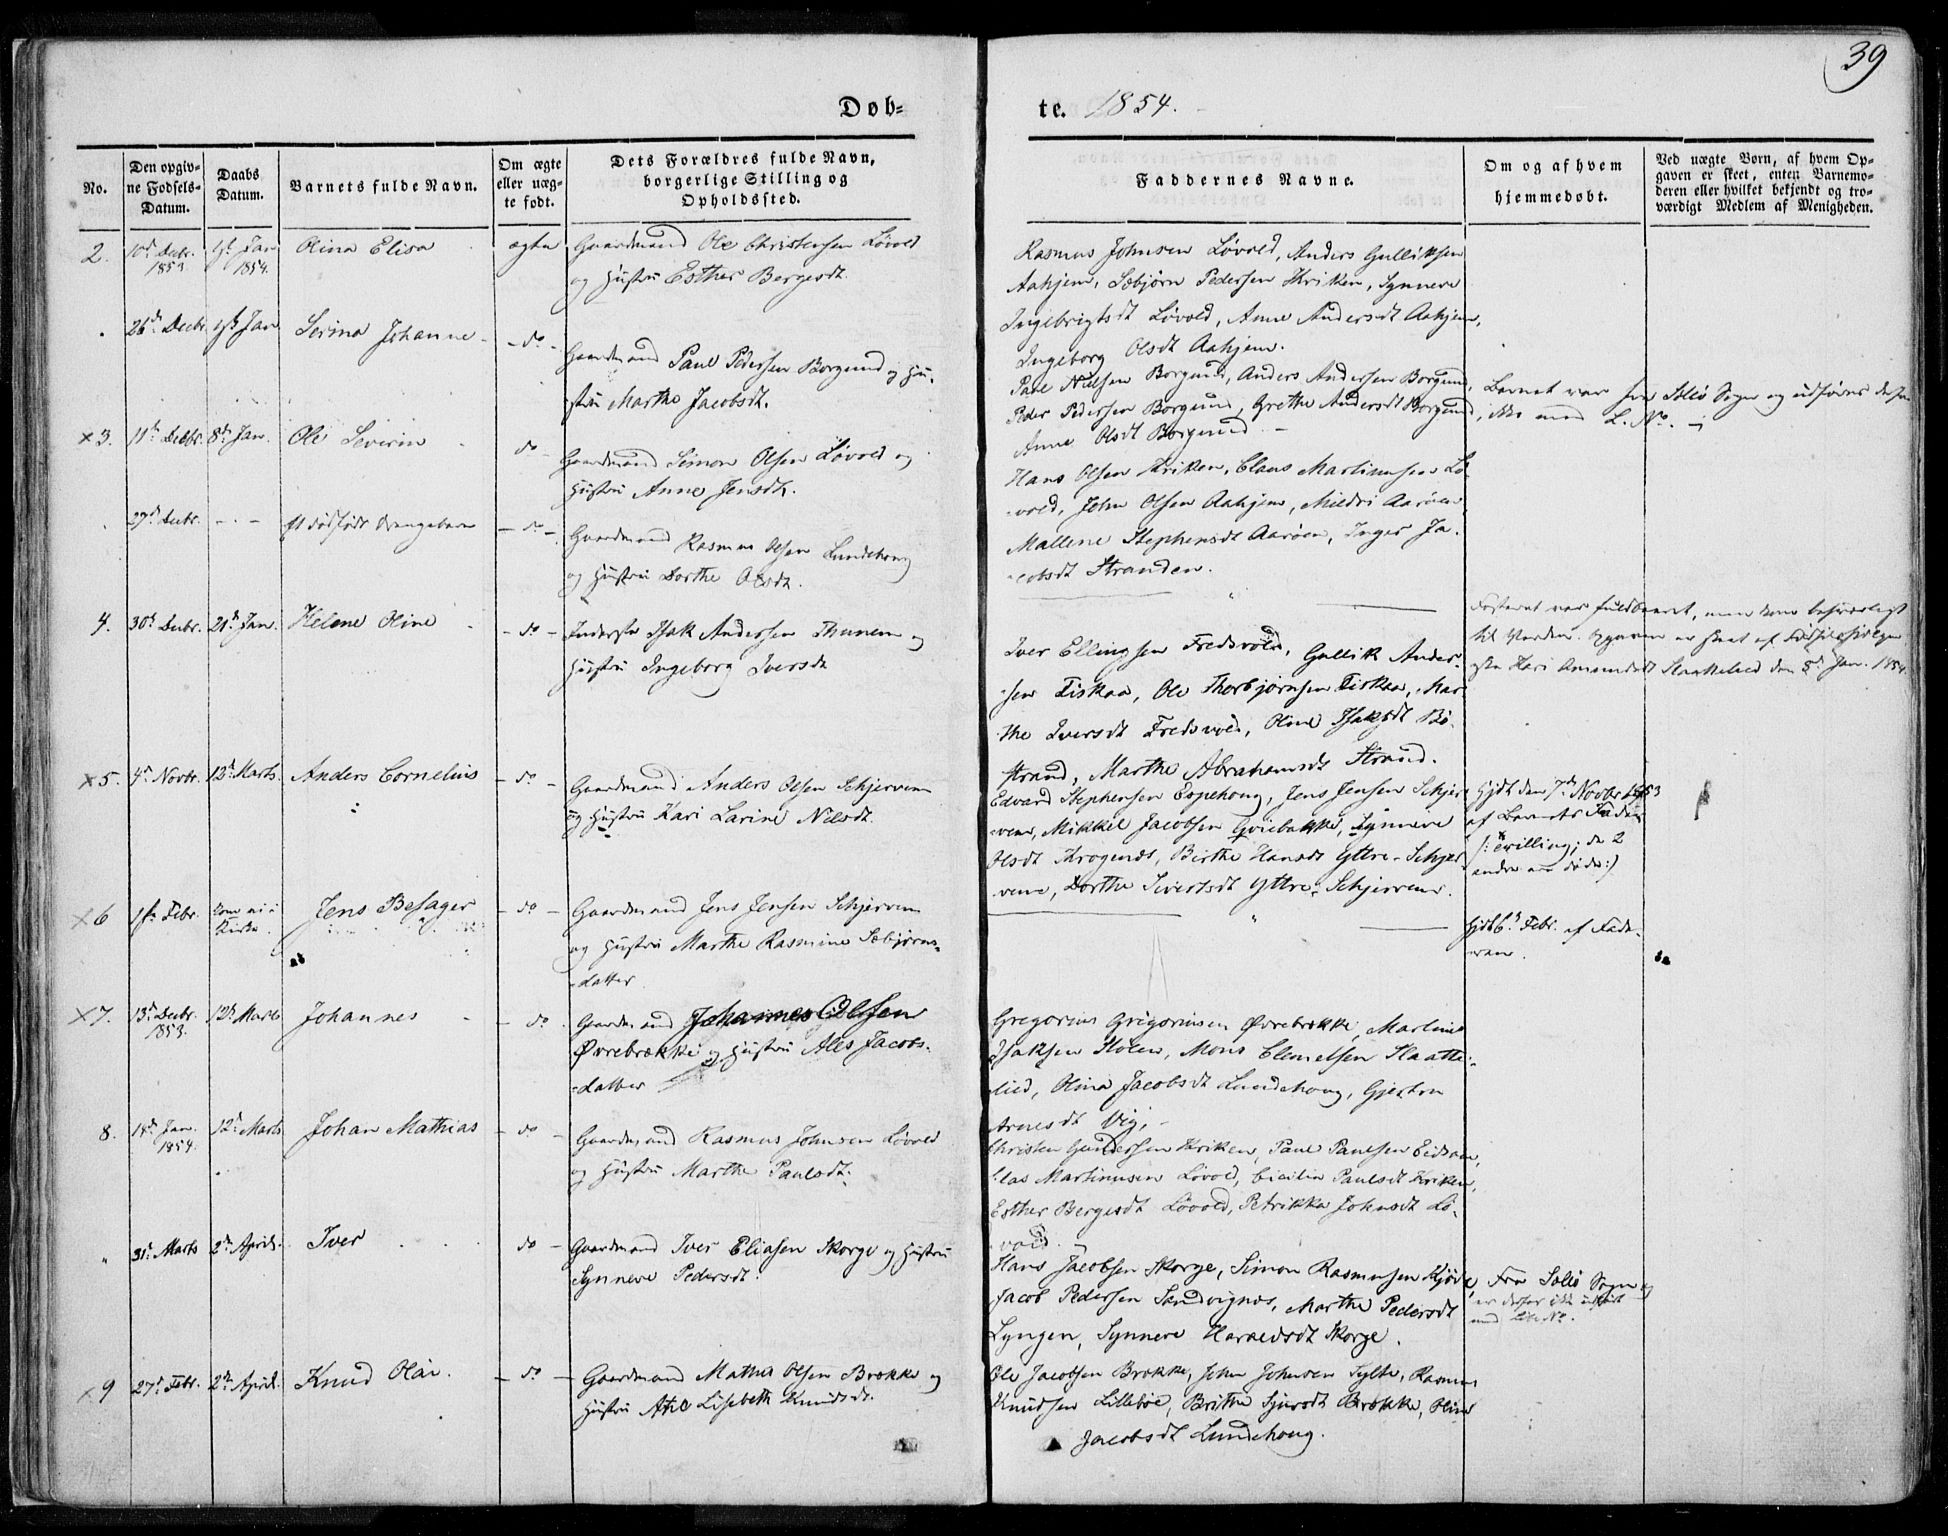 39
Døb=
te. 1854.
No.
Den opgiv-
ne Fødsels-
Datum.
Daabs
Datum.
Barnets fulde Navn.
Om ægte
eller uæg-
te født.
Dets Forældres fulde Navn,
borgerlige Stilling og
Opholdssted.
Faddernes Navne.
Om og af hvem
hjemmedøbt.
Ved uægte Børn, af hvem Op-
gaven er skeet, enten Barnemo-
deren eller hvilket bekjendt og tro-
værdigt Medlem af Menigheden.
2. 10d Decbr. 1853. Jan 1854. Olina Elisa ægte Gaardmand Ole Christensen Løvold
og Hustru Esther Bergesdt.
Rasmus Johnsen Løvold, Anders Gulliksen
Aahjem, Sebjørn Pedersen Kriken, Synneve
Ingebrigtsdt Løvold, Anne Andersdt Aahjem,
Ingeborg Olsdt Aahjem.
26d Decbr. Jan Serina Johanne - do -
Gaardmand Paul Pedersen Borgund og Hu-
stru Marthe Jacobsdt.
Paul Nielsen Borgund, Anders Andersen Borgund,
Peder Pedersen Borgund, Grethe Andersdt Borgund,
Anne Olsdt Borgund. -
Barnet var fra Sølø Sogn og udføres derfor
ikke med L. No. -
x3. 11te Decbr. 8de Jan. Ole Severin do -
Gaardmand Simon Olsen Løvold og
Hustru Anne Jensdt.
Hans Olsen Kriken, Claus Martinusen Lø-
vold, John Olsen Aahjem, Mildri Aarøen
Mallene Stephensdt Aarøen, Inger Ja-
cobsdt Stranden.
27d Decbr. - . - Et dødfødt Drengebarn - do -
Gaardmand Rasmus Olsen Lundehoug
og Hustru Dorthe Olsdt.
Fosteret var fuldbaaret, men kom besværligt
til Verden. Opgaven er skeet af
Kari Amundsdt Slaattelied den 8d Jan. 1854.
4. 30d Decbr. 21d Jan. Helene Oline - do - Inderste Isak Andersen Thunem og
Hustru Ingeborg Iversdt
Iver Ellingsen Fredsvold, Gullik Ander-
sen Fiskaa, Ole Thorbjørnsen Fiskaa, Mar-
the Iversdt Fredsvold, Oline Isaksdt Bø-
strand, Marthe Abrahamsdt Strand.
x5. 4d Novbr. 12d Marts. Anders Cornelius - do - Gaardmand Anders Olsen Schjerven
og Hustru Kari Larine Nilsdt.
Edvard Stephensen Espehoug, Jens Jensen Schjer-
ven, Mikkel Jacobsen Qviebakke, Synneve
Olsdt Krogenes, Birthe Hansdt Yttre-Schjer-
vene, Dorthe Sivertsdt Yttre-Schjervene.
Hjdt den 7de Novbr 1853
af Barnets Fader
/: Trilling; de 2
andre ere døde:/
x6 1ste Febr. kom ei i
Kirke. Jens Besager - do - Gaardmand Jens Jensen Schjerven
og Hustru Marthe Rasmine Sebjørns-
datter.
Hjdt 6d Febr. af Fade-
ren.
x7. 13d Decbr. 1853. 12te Marts Johannes - do. Gaardmand Johannes Olsen
Øvrebrække og Hustru Ales Jacobs-
datter
Gregorius Gregoriusen Øvrebrække, Martinus
Isaksen Holen, Mons Clemetsen Slaatte-
lied, Olina Jacobsdt Lundehoug, Gjertru
Arnesdt Vig, -
8. 14d Jan. 1854. 12te Marts Johan Mathias - do - Gaardmand Rasmus Johnsen Løvold
og Hustru Marthe Paulsdt.
Christen Gundersen Kriken, Paul Paulsen Eidsem,
Clas Martinusen Løvold, Cicilie Paulsdt Kriken,
Esther Bergesdt Løvold, Petrikka Johnsdt Lø-
vold.
31d Marts 2de April. Iver do - Gaardmand Iver Eliasen Skorge og Hustru
Synneve Pedersdt.
Hans Jacobsen Skorge, Simon Rasmusen Kjøde,
Jacob Pedersen Sandvignæs, Marthe Pedersdt
Lyngen, Synneve Haraldsdt Skorge.
Fra Sølø Sogn og
er derfor ikke udført
med Løbe No.
x9 27d Febr. 2den April. Knud Olai. - do - Gaardmand Mathis Olsen Brekke og
Hustru Ane Lisebeth Knudsdt.
Ole Jacobsen Brekke, John Johnsen Sylte, Rasmus
Knudsen Lillebøe, Brithe Sjursdt Brekke, Oline
Jacobsdt Lundehoug.